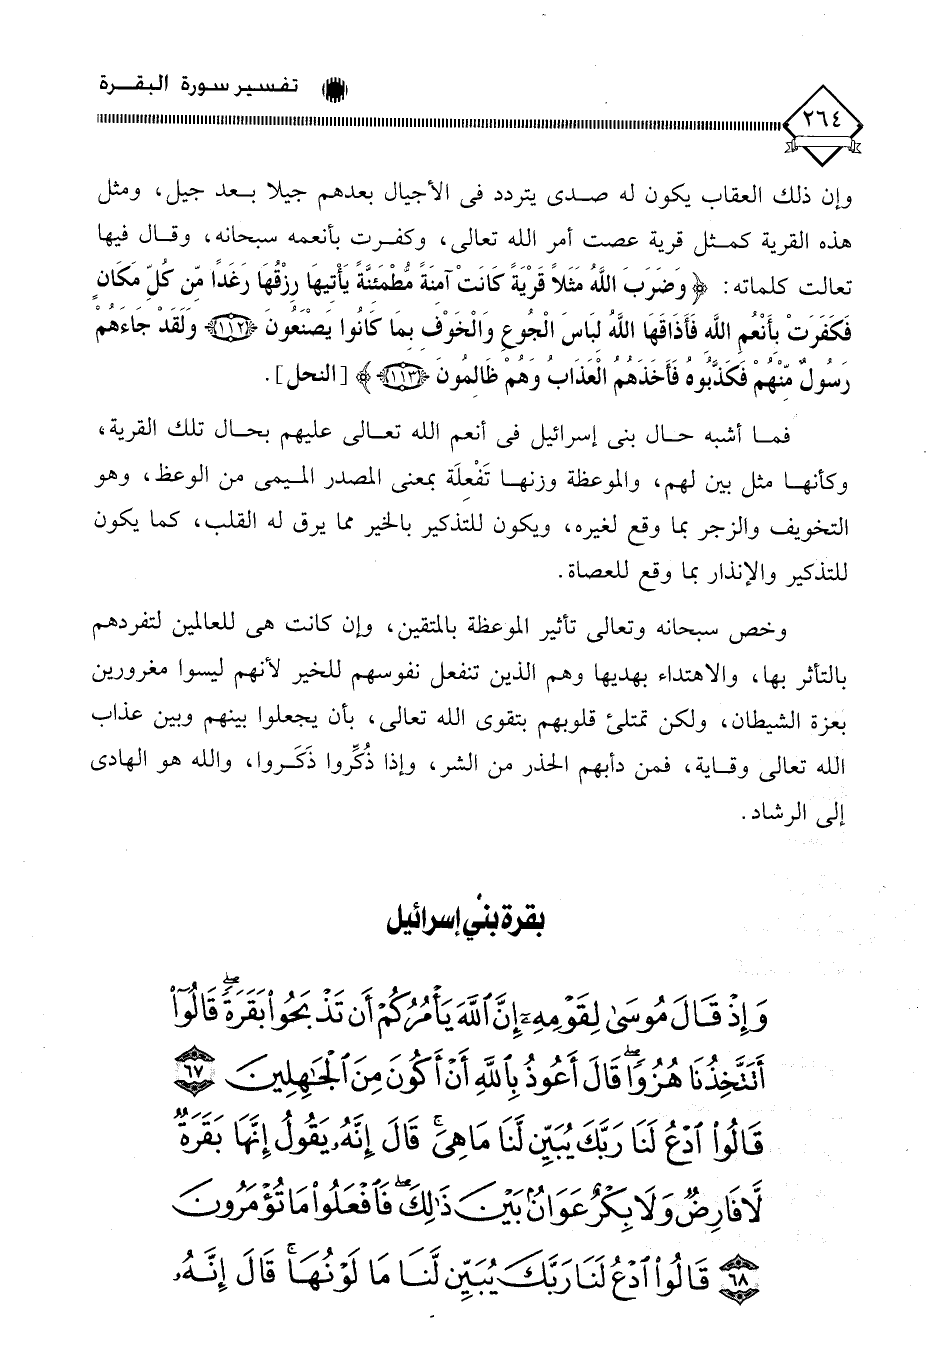 تفسير سورة البقرة
٢٦٤
وإن ذلك العقاب يكون له صدى يتردد فى الأجيال بعدهم جيلا بعد جيل، ومثل
هذه القرية كمثل قرية عصت أمر الله تعالى، وكفرت بأنعمه سبحانه، وقال فيها
تعالت كلماته: ﴿ وَضَرَبَ اللَّهُ مَثَلاً قَرْيَةً كَانَتْ آمِنَةً مُّطْمَئِنَّةً يَأْتِيهَا رِزْقُهَا رَغَدًا مِّن كُلِّ مَكَانٍ
فَكَفَرَتْ بِأَنْعُمِ اللَّهِ فَأَذَاقَهَا اللَّهُ لِبَاسَ الْجُوعِ وَالْخَوْفِ بِمَا كَانُوا يَصْنَعُونَ ﴿١١٢﴾ وَلَقَدْ جَاءَهُمْ
رَسُولٌ مِّنْهُمْ فَكَذَّبُوهُ فَأَخَذَهُمُ الْعَذَابُ وَهُمْ ظَالِمُونَ ﴿١١٣﴾ ﴾ [النحل].
فما أشبه حال بنى إسرائيل فى أنعم الله تعالى عليهم بحال تلك القرية،
وكأنها مثل بين لهم، والموعظة وزنها تَفْعِلَة بمعنى المصدر الميمى من الوعظ، وهو
التخويف والزجر بما وقع لغيره، ويكون للتذكير بالخير مما يرق له القلب، كما يكون
للتذكير والإنذار بما وقع للعصاة.
وخص سبحانه وتعالى تأثير الموعظة بالمتقين، وإن كانت هى للعالمين لتفردهم
بالتأثر بها، والاهتداء بهديها وهم الذين تنفعل نفوسهم للخير لأنهم ليسوا مغرورين
بعزة الشيطان، ولكن تمتلئ قلوبهم بتقوى الله تعالى، بأن يجعلوا بينهم وبين عذاب
الله تعالى وقاية، فمن دأبهم الحذر من الشر، وإذا ذُكِّروا ذَكَروا، والله هو الهادى
إلى الرشاد.
بقرة بني إسرائيل
وَإِذْ قَالَ مُوسَىٰ لِقَوْمِهِۦٓ إِنَّ ٱللَّهَ يَأْمُرُكُمْ أَن تَذْبَحُوا۟ بَقَرَةً ۖ قَالُوٓا۟
أَتَتَّخِذُنَا هُزُوًا ۖ قَالَ أَعُوذُ بِٱللَّهِ أَنْ أَكُونَ مِنَ ٱلْجَٰهِلِينَ ٦٧
قَالُوا۟ ٱدْعُ لَنَا رَبَّكَ يُبَيِّن لَّنَا مَا هِىَ ۚ قَالَ إِنَّهُۥ يَقُولُ إِنَّهَا بَقَرَةٌ
لَّا فَارِضٌ وَلَا بِكْرٌ عَوَانٌۢ بَيْنَ ذَٰلِكَ ۖ فَٱفْعَلُوا۟ مَا تُؤْمَرُونَ
٦٨ قَالُوا۟ ٱدْعُ لَنَا رَبَّكَ يُبَيِّن لَّنَا مَا لَوْنُهَا ۚ قَالَ إِنَّهُۥ